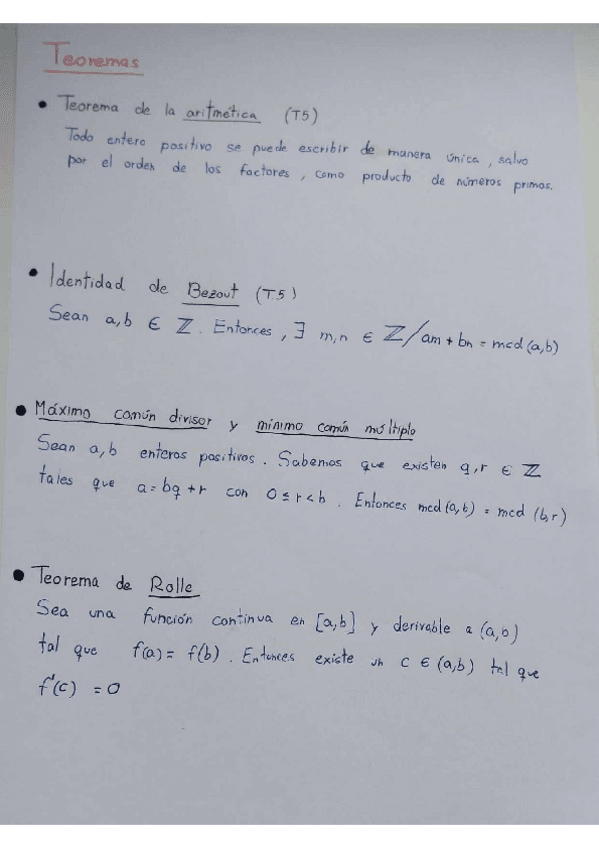 Teoremas
• Teorema de la aritmética (T5)
Todo entero positivo se puede escribir de manera única, salvo
por el orden de los factores, como producto de números primos.
• Identidad de Bezout (T.5)
Sean a,b ∈ ℤ. Entonces, ∃ m,n ∈ ℤ/am + bn = mcd(a,b)
• Máximo común divisor y mínimo común múltiplo
Sean a,b enteros positivos. Sabemos que existen q,r ∈ ℤ
tales que a = bq + r con 0 ≤ r < b. Entonces mcd(a,b) = mcd (b,r)
• Teorema de Rolle
Sea una función continua en [a,b] y derivable a (a,b)
tal que f(a) = f(b). Entonces existe un c ∈ (a,b) tal que
f'(c) = 0